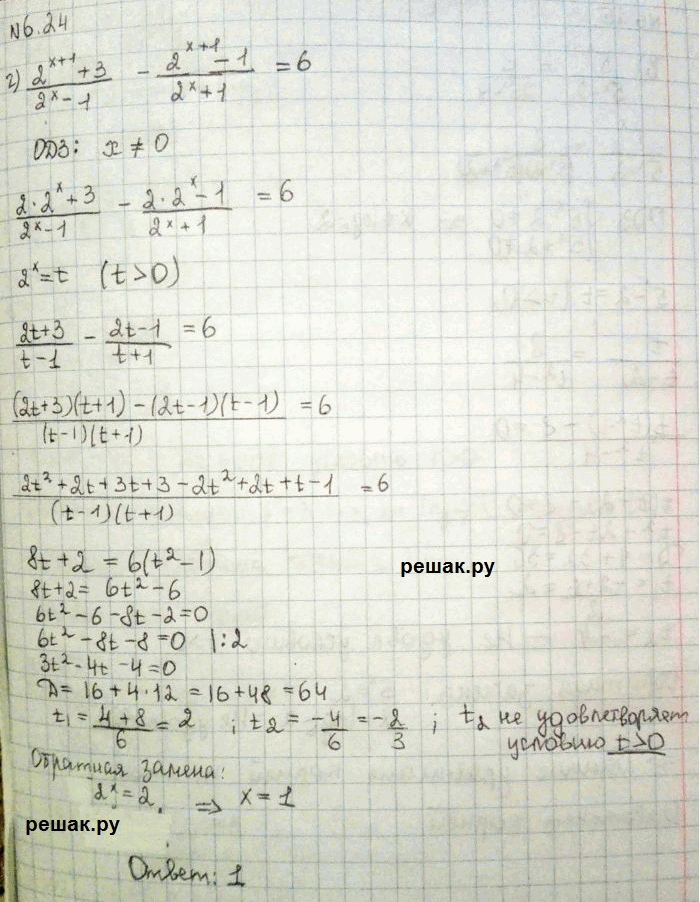 №6.24
г) (2^(x+1) + 3)/(2^x − 1) − (2^(x+1) − 1)/(2^x + 1) = 6
ОДЗ: x ≠ 0
(2·2^x + 3)/(2^x − 1) − (2·2^x − 1)/(2^x + 1) = 6
2^x = t (t > 0)
(2t+3)/(t−1) − (2t−1)/(t+1) = 6
((2t+3)(t+1) − (2t−1)(t−1))/((t−1)(t+1)) = 6
(2t² + 2t + 3t + 3 − 2t² + 2t + t − 1)/((t−1)(t+1)) = 6
8t + 2 = 6(t² − 1)
решак.ру
8t + 2 = 6t² − 6
6t² − 6 − 8t − 2 = 0
6t² − 8t − 8 = 0 |:2
3t² − 4t − 4 = 0
D = 16 + 4·12 = 16 + 48 = 64
t₁ = (4+8)/6 = 2 ; t₂ = −4/6 = −2/3 ; t₂ не удовлетворяет
условию t>0
Обратная замена:
2^x = 2 ⇒ x = 1
решак.ру
Ответ: 1